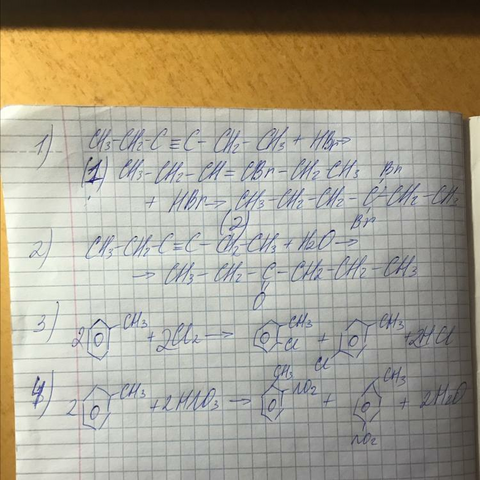 1) CH3-CH2-C≡C-CH2-CH3 + HBr→
(1) CH3-CH2-CH=CBr-CH2-CH3 Br
+ HBr→ CH3-CH2-CH2-C-CH2-CH3
(2) Br
2) CH3-CH2-C≡C-CH2-CH3 + H2O →
→ CH3-CH2-C-CH2-CH2-CH3
O
3) 2 CH3 + 2Cl2 → CH3 Cl + CH3 Cl + 2HCl
4) 2 CH3 + 2HNO3 → CH3 NO2 + CH3 + 2H2O
NO2